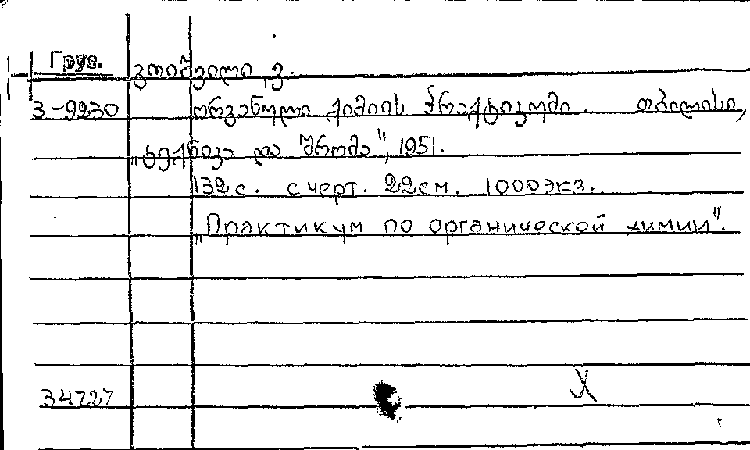 Груз.
გოიშვილი, ვ.
3-9230 ორგანული ქიმიის პრაქტიკუმი. თბილისი,
„ტექნიკა და შრომა", 1951.
132 с. с черт. 22 см. 1000 экз.
„Практикум по органической химии".
34727
X